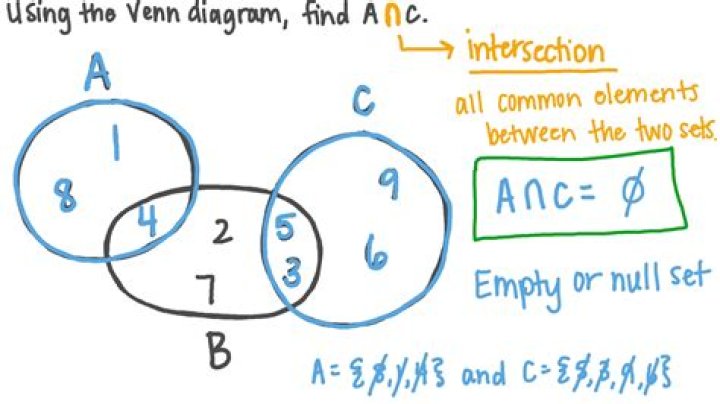 Using the Venn diagram, find A∩C.
intersection
all common elements
between the two sets.
A
C
1
8
4
2
7
5
3
9
6
B
A∩C = ∅
Empty or null set
A = {8,1,4} and C = {5,3,9,6}